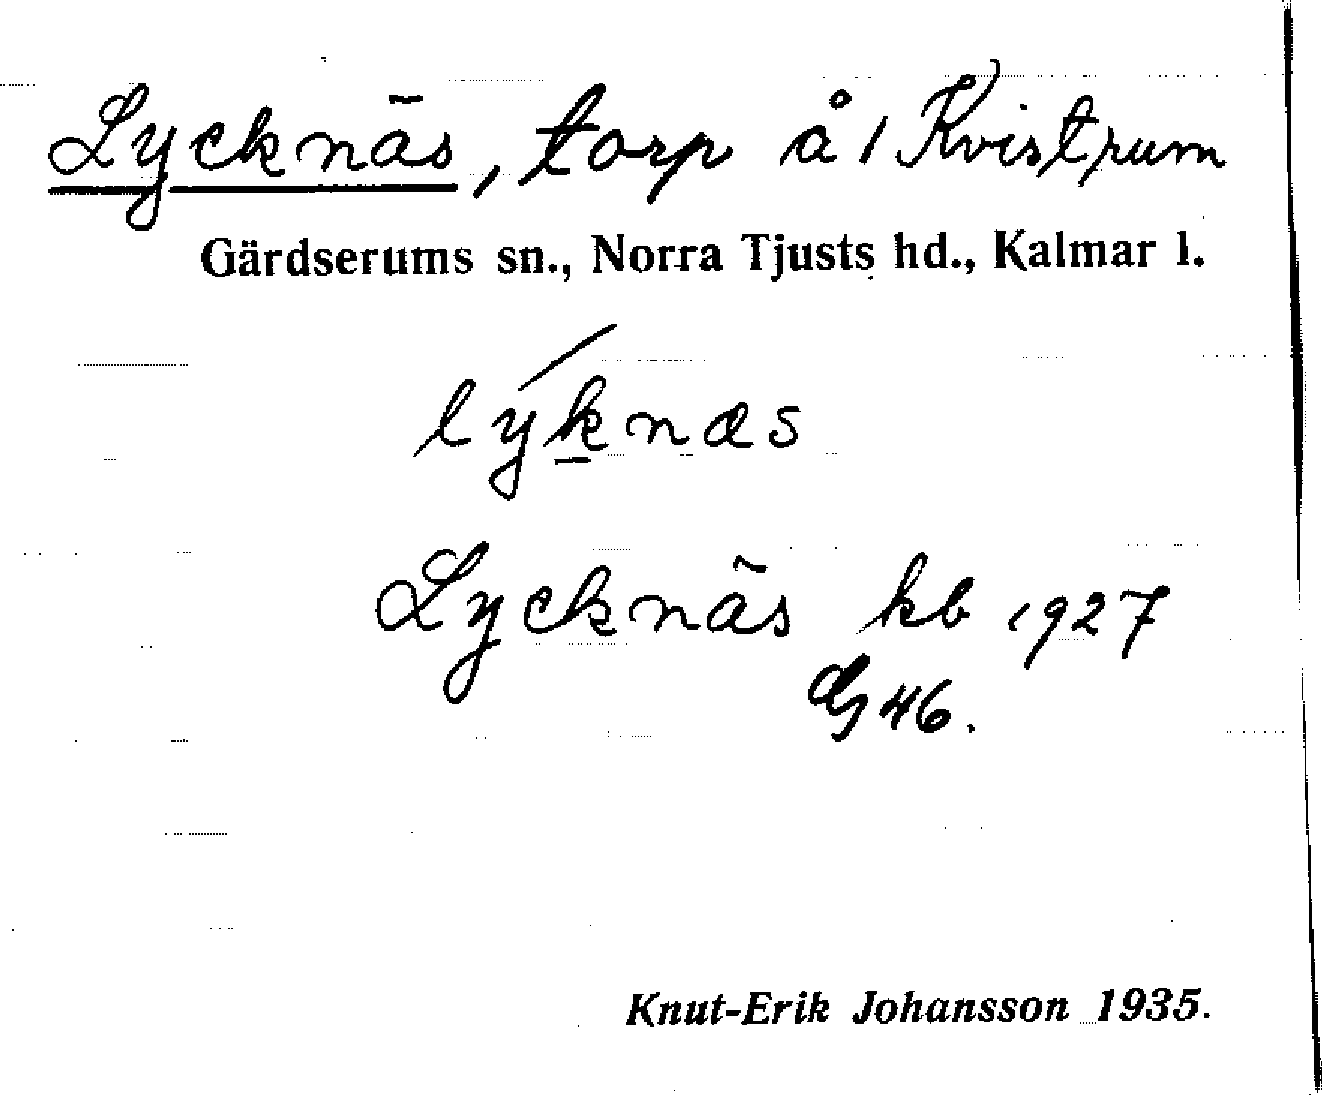 Lycknäs, torp å 1 Kvistrum
Gärdserums sn., Norra Tjusts hd., Kalmar l.
lýknæs
Lycknäs kb 1927
G 46.
Knut-Erik Johansson 1935.